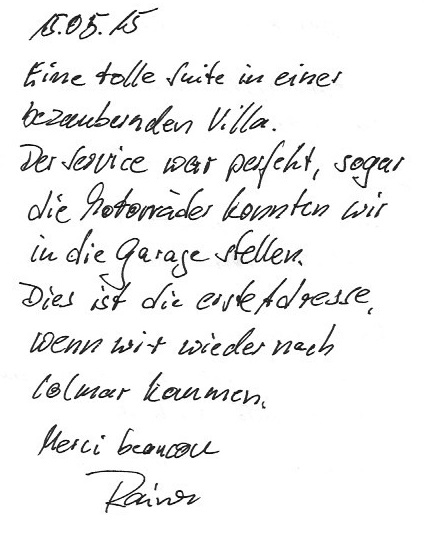 15.05.15
Eine tolle Suite in einer
bezaubernden Villa.
Der Service war perfekt, sogar
die Motorräder konnten wir
in die Garage stellen.
Dies ist die erste Adresse,
wenn wir wieder nach
Colmar kommen.
Merci beaucou
Rainer